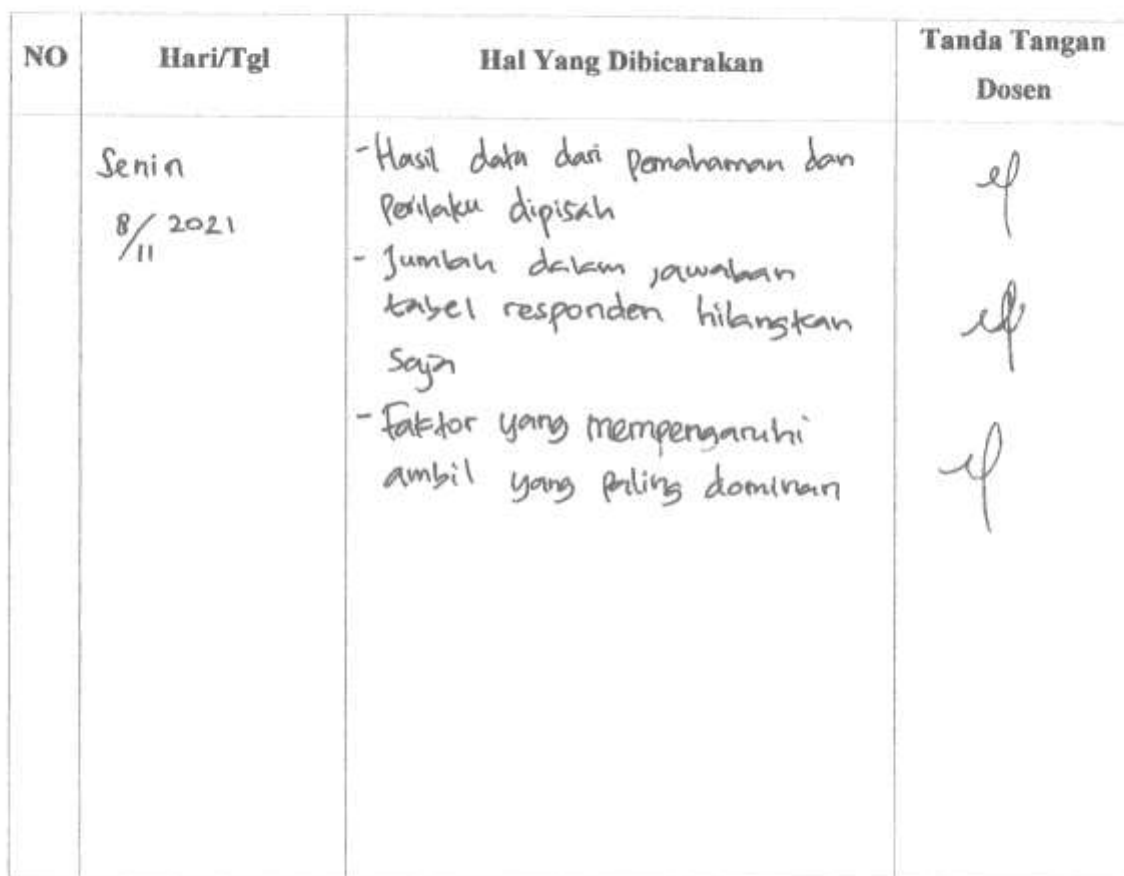 NO
Hari/Tgl
Hal Yang Dibicarakan
Tanda Tangan
Dosen
Senin
8/11 2021
- Hasil data dari Pemahaman dan
Perilaku dipisah
- Jumlah dalam jawaban
tabel responden hilangkan
saja
- Faktor yang mempengaruhi
ambil yang paling dominan